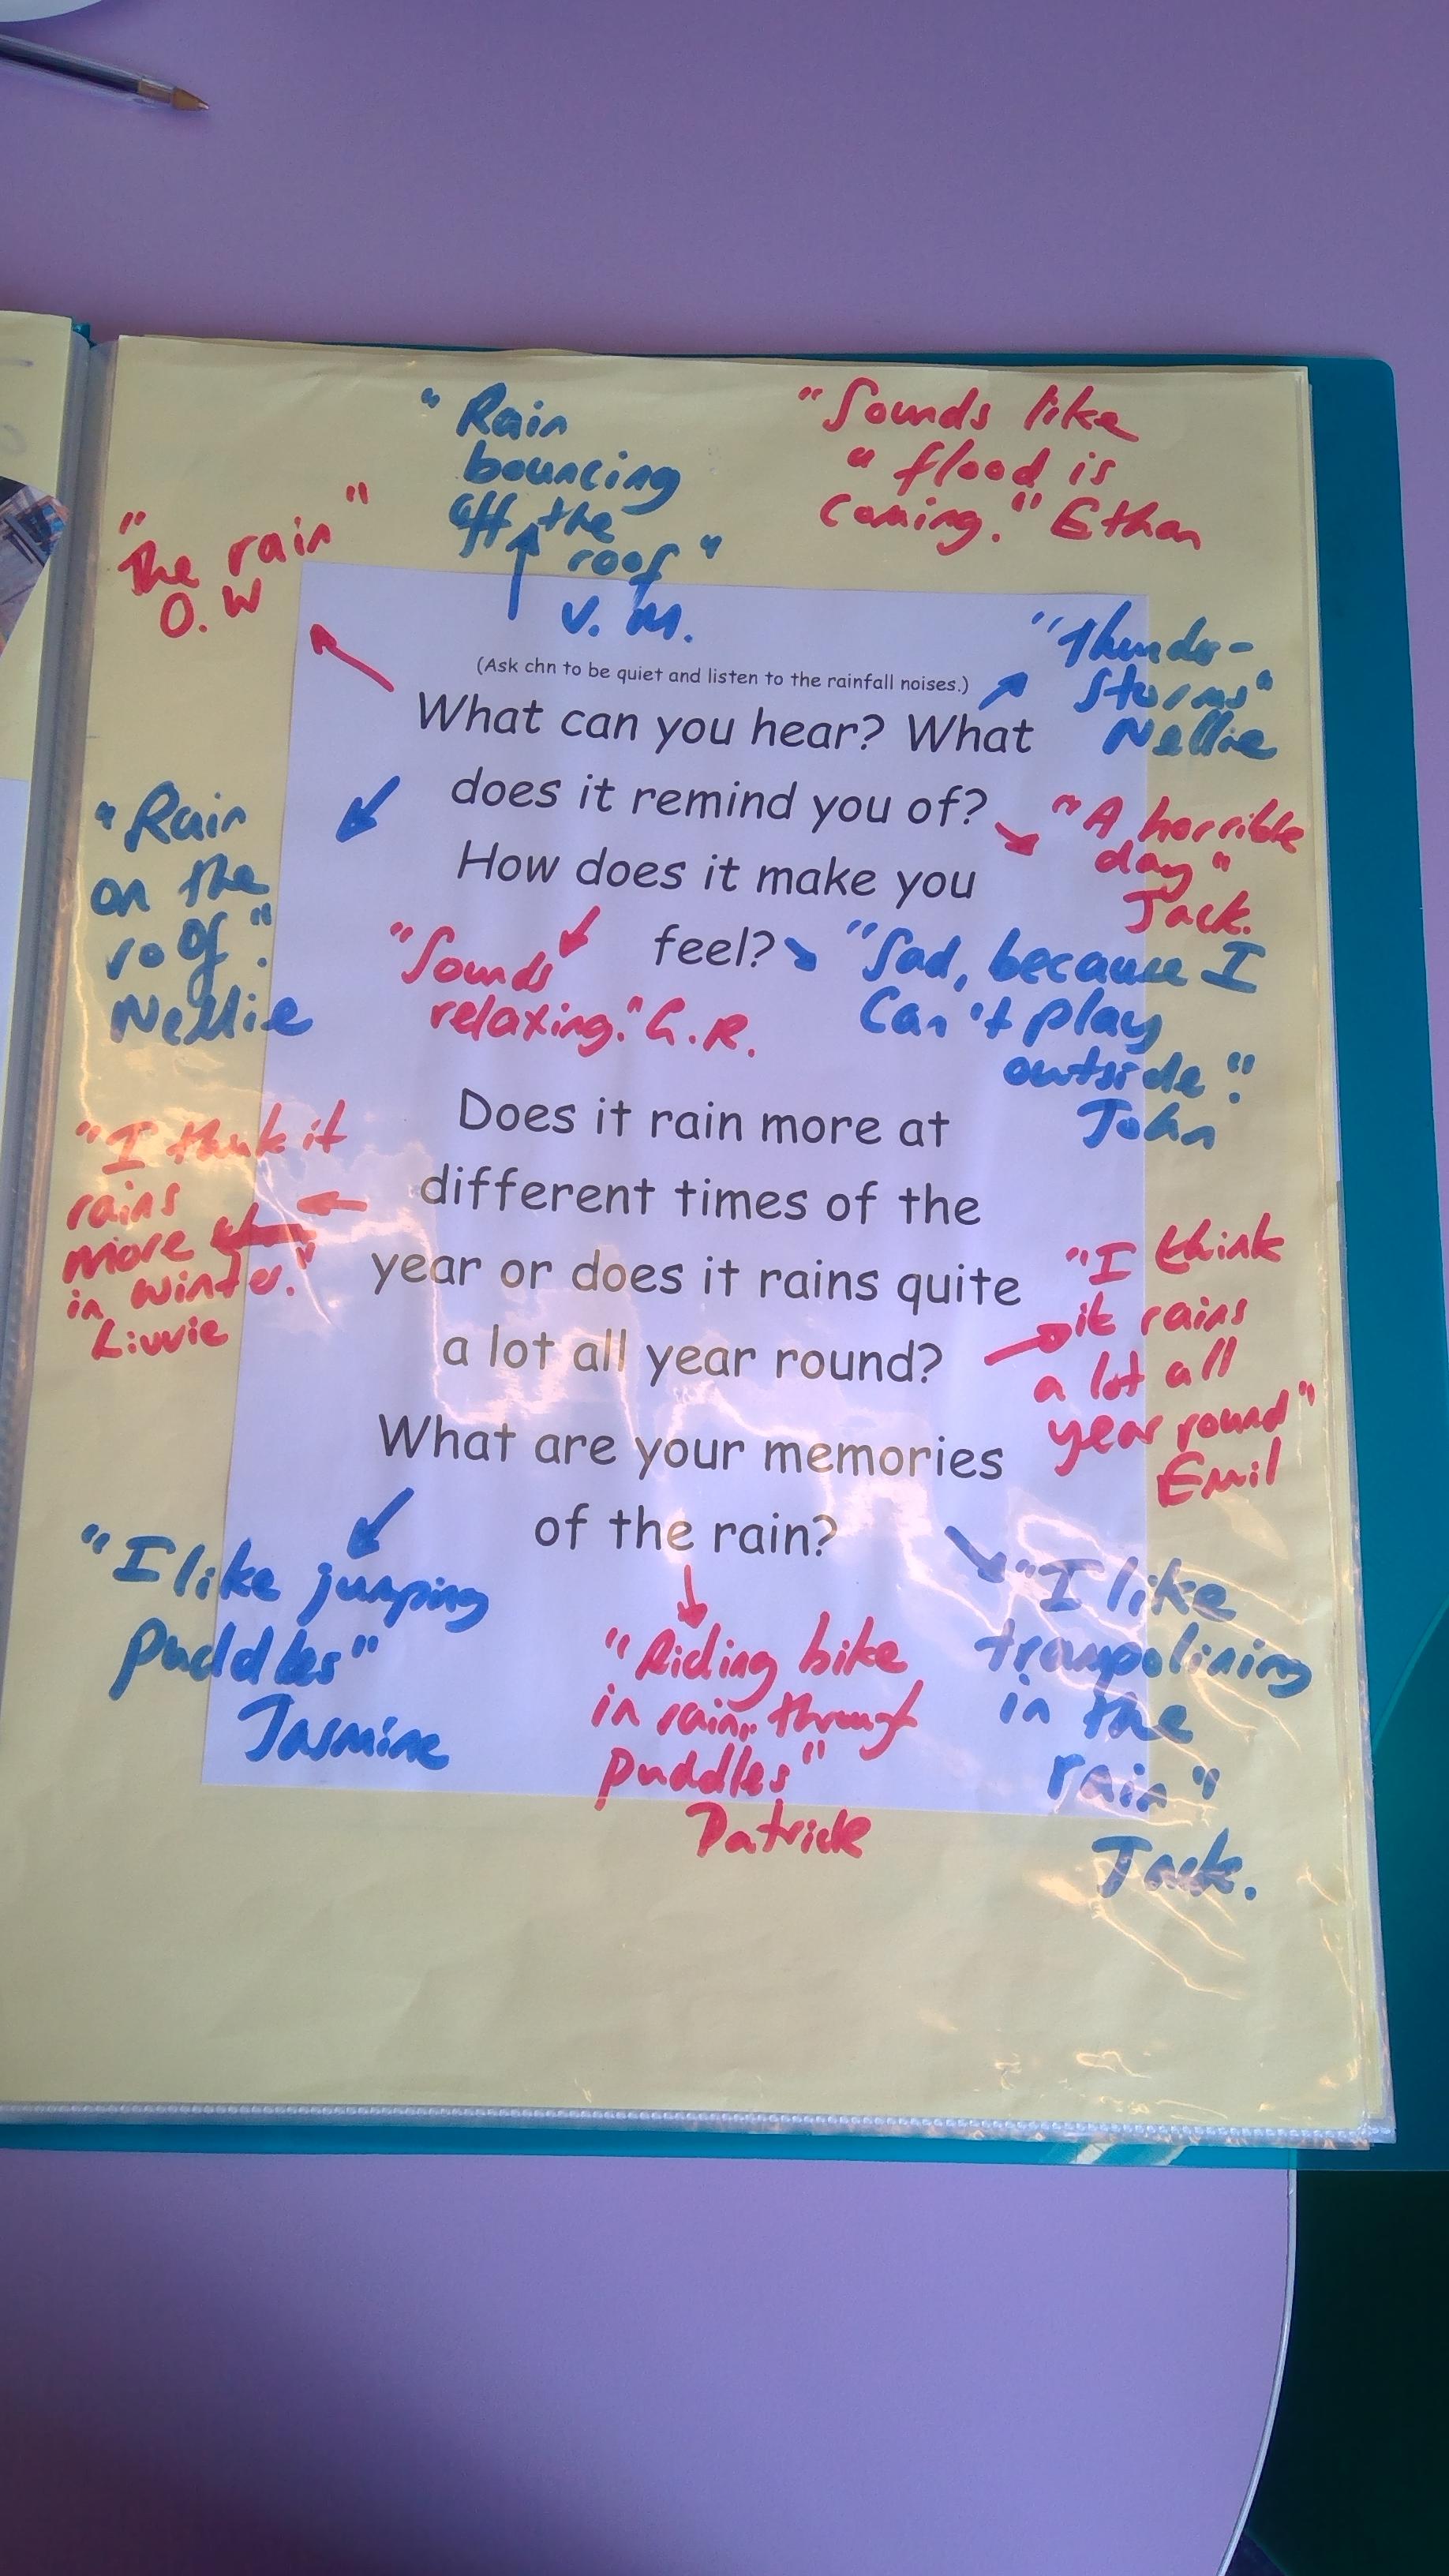 "Rain
bouncing
off the
roof"
V. M.
"Sounds like
a flood is
coming." Ethan
"The rain"
O. W
"Thunder-
storms"
Nellie
(Ask chn to be quiet and listen to the rainfall noises.)
What can you hear? What
does it remind you of?
How does it make you
feel?
"A horrible
day"
Jack.
"Rain
on the
roof".
Nellie
"Sounds
relaxing." G.R.
"Sad, because I
Can't play
outside".
John
Does it rain more at
different times of the
year or does it rains quite
a lot all year round?
"I think it
rains
more
in winter."
Livvie
"I think
it rains
a lot all
year round"
Emil
What are your memories
of the rain?
"I like jumping
Puddles"
Jasmine
"Riding bike
in rain, through
puddles"
Patrick
"I like
trampolining
in the
rain"
Jack.